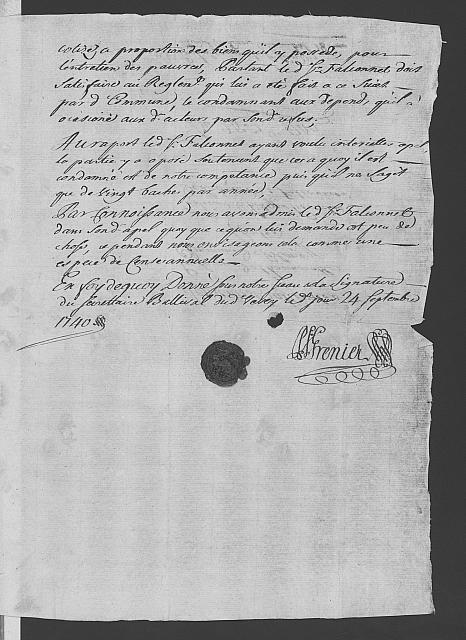 cotizé, a proportion des biens qu'il y possede, pour
L'entretien des pauvres, Partant led. Sr. Falconnet doit
Satisfaire au Reglemt. qui lui a été fait a ce Sujet
par d. Commune, le condamnant aux depends qu'il a
ocasioné aux d. acteurs par fond
Au raport led. Sr. Falconnet ayant voulu interjetter apel
la partie y a oposé Soutenant que ce a quoy il est
condamné est de notre competance puis qu'il ne s'agit
que de vingt baches par année,
Par Connoissance nous avons admis led. Sr. Falconnet
dans Son d. apel quoy que ce qu'on lui demande est peu de
chose, cependant nous envisageons cela comme une
espece de Cense annuelle
En foy dequoy Donné sous notre Sceau & la Signature
du Secretaire Ballival dud. le d. jour 24 Septembre
1740
Grenier